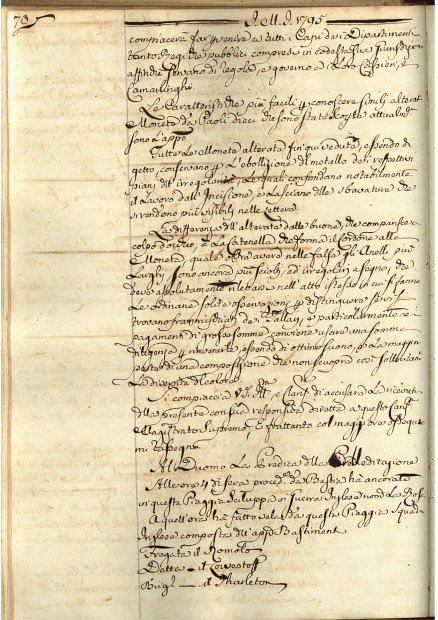 70
J. M. J. 1795
compiacerà far pervenire a tutti i Capi dei Dipartimenti
tanto Regi che pubblici compresi in codesta sua
affinché servano di regola, e governo ai loro Cassieri, e
Camarlinghi.
Le Caratteristiche più facili per conoscere simili alterate
Monete da Paoli dieci che sono state colte attualmente
sono l'appo
Tutte le Monete alterate fin qui vedute, essendo di
getto, conservano per l'ebollizione di metallo dei respettivi
piani dell'irregolarità, le quali confondano notabilmente
il Lavoro dell'Incisione, e lasciano delle sbavature che
si rendono più visibili nelle lettere.
La differenza dell'alterata dalla buona, che comparisce
colpo d'occhio, è la Catenella che forma il Cordone alla
Moneta, quale oltre avere nelle false gli Anelli più
Larghi sono ancora più e irregolari a segno, che
deve assolutamente
Le ordinarie solite osservazioni per distinguere se vi
trovano frammischiati dei Tallari, e particolarmente nei
pagamenti di grosse somme, conviene usare una somma
diligenza per rinvenirle, essendo di ottimo suono, e la maggior
parte di una composizione che non scuopre così sollecitam
La diversità del colore.
Si compiaccia V. S. Ill. e Clariss. di accusare la ricevuta
della presente con sua responsiva diretta a questo
Magistrato Supremo, E frattanto col maggiore ossequio
mi rassegno
Al Duomo La Predica della Meditazione
Alle ore 4 di sera proced. da Bastia ha ancorato
in questa Piaggia Sciluppa in guerra Inglese nomd La Rose
A quell'ora ha fatto vela da queste Piaggie Squadra
Inglese composta dell'app. Bastiment
Fregata il Romolo
Detta – il
Brigl – il Tharleton